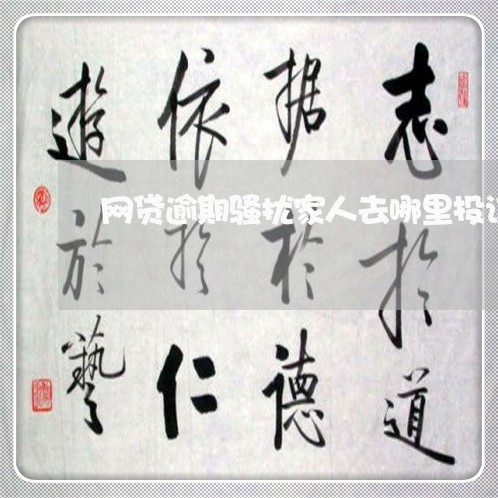 志於道
据於德
依於仁
遊於藝
网贷逾期骚扰家人去哪里投